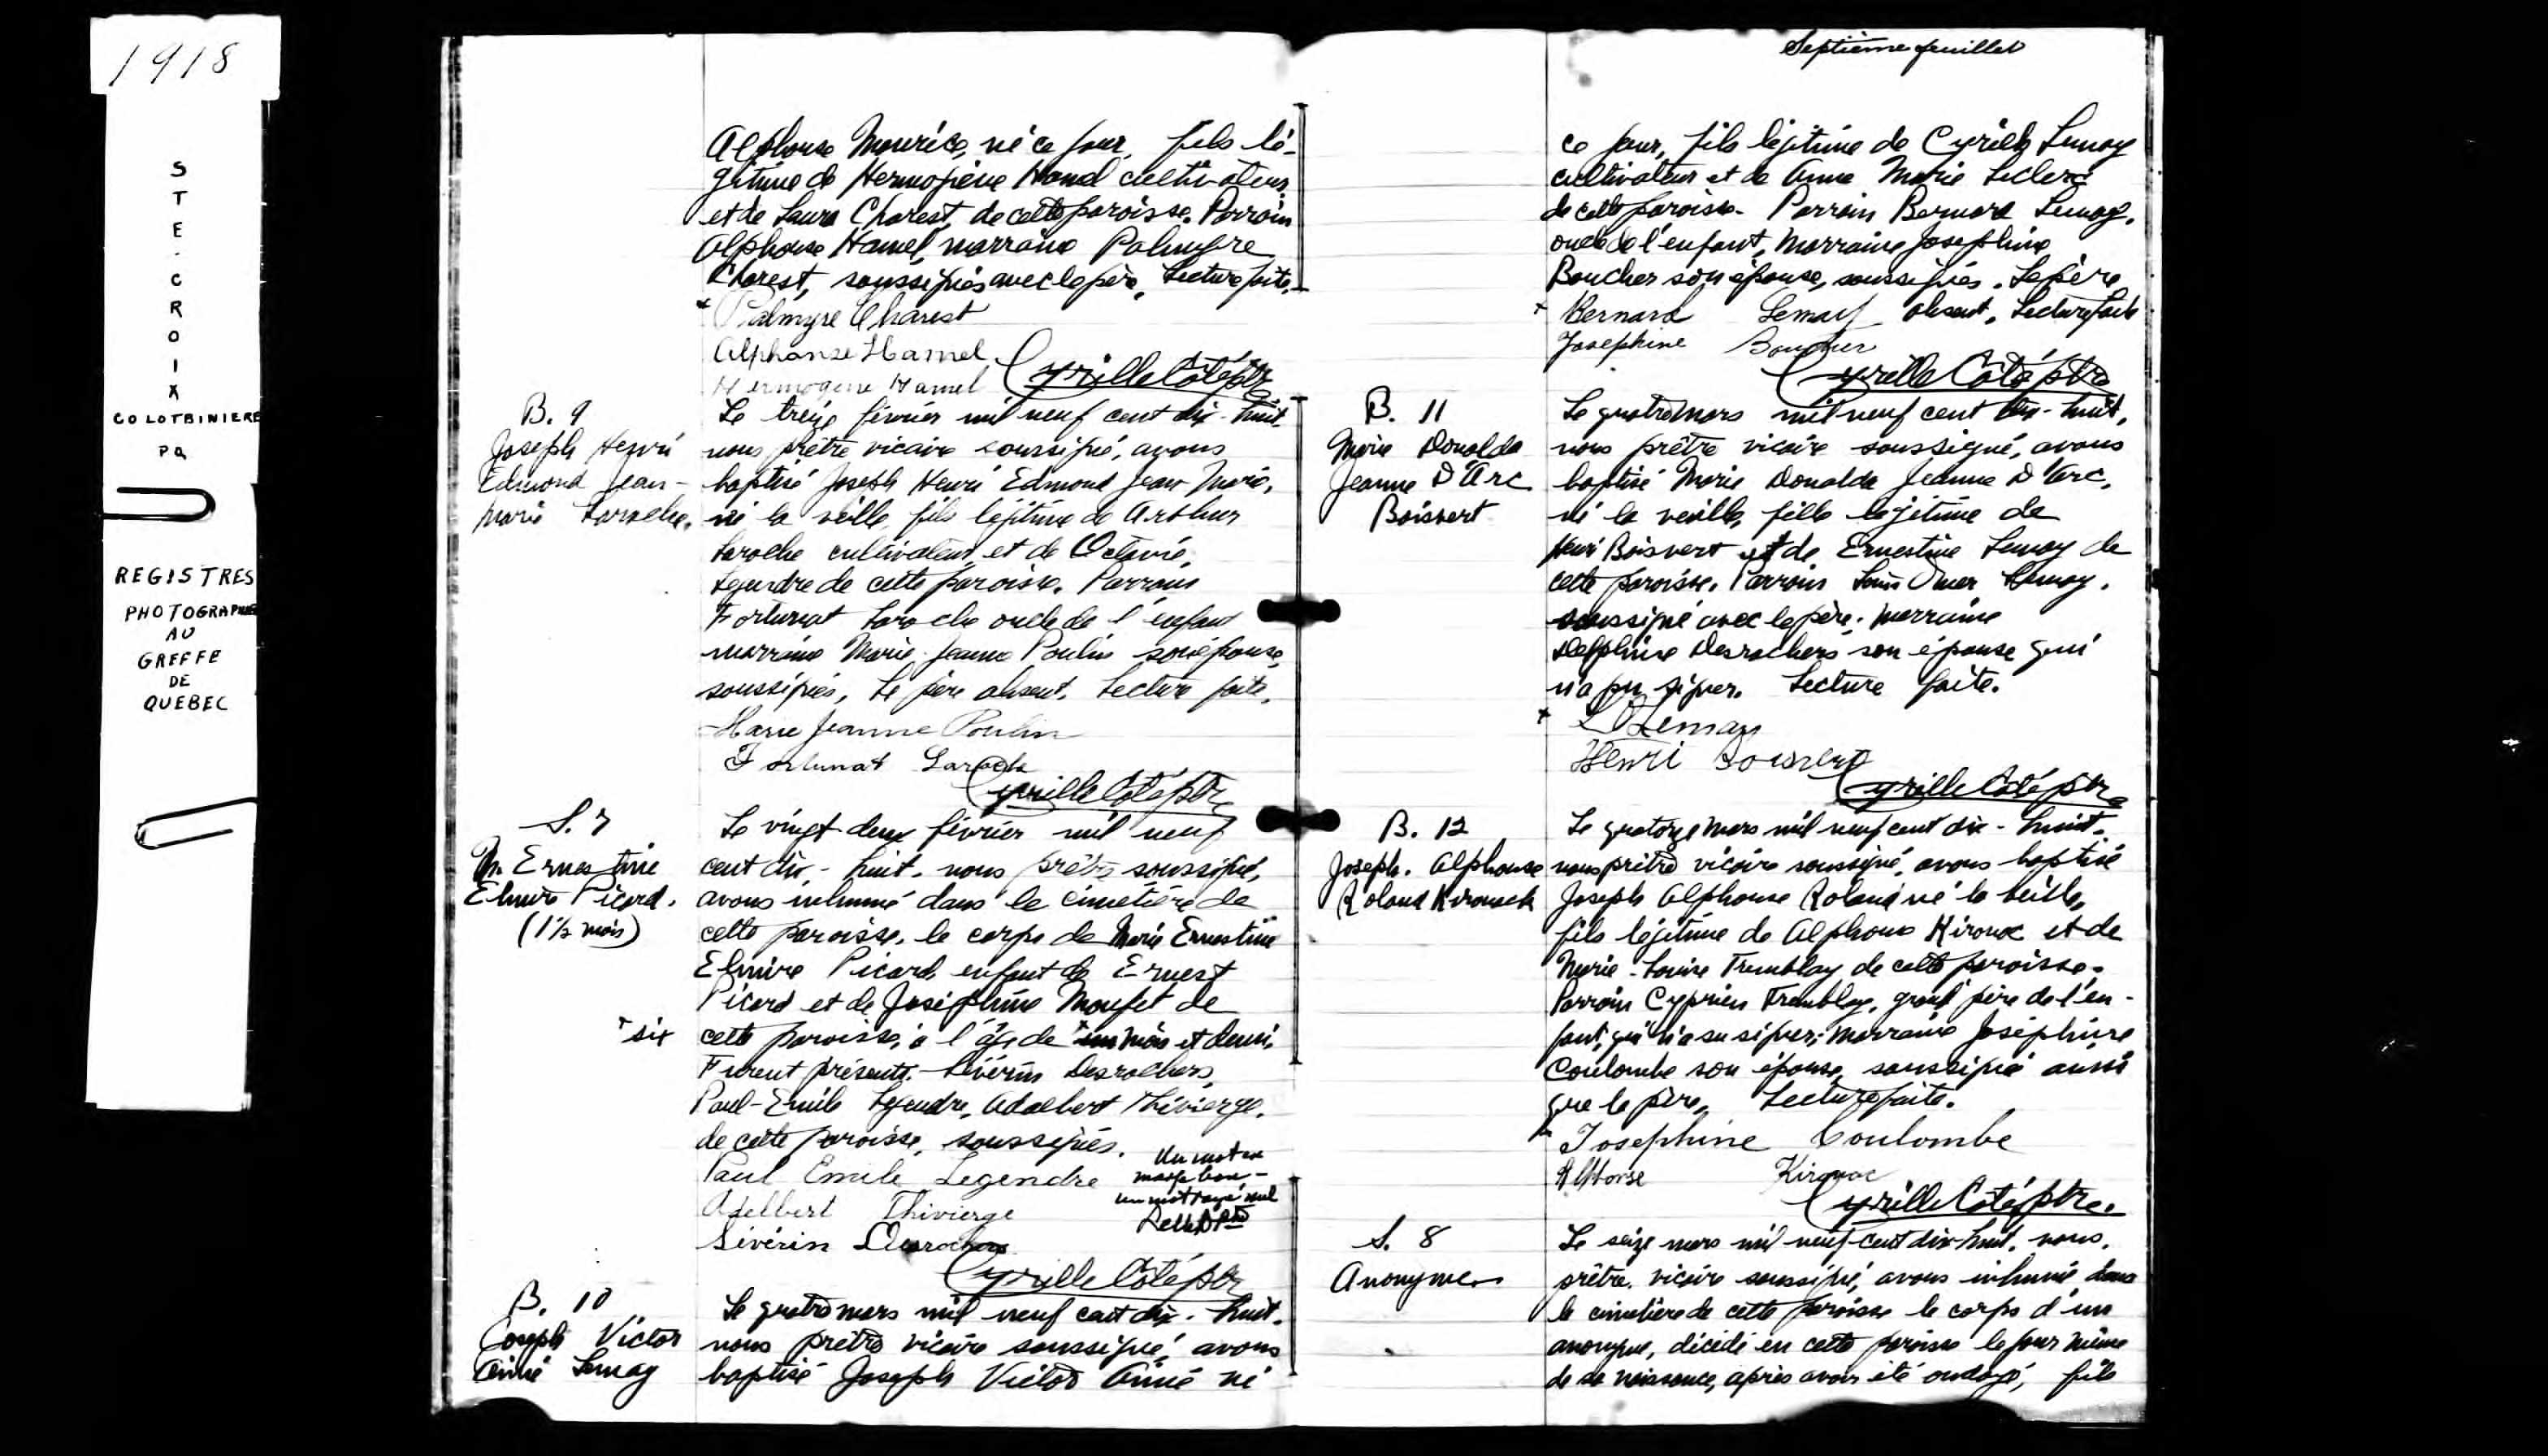 1918
STE. CROIX
CO LOTBINIERE
PQ
REGISTRES
PHOTOGRAPHIE
AU
GREFFE
DE
QUEBEC
Alphonse Maurice, né ce jour, fils lé-
gitime de Hermogène Hamel cultivateur
et de Laura Charest, de cette paroisse. Parrain
Alphonse Hamel, marraine Palmyre
Charest, soussignés avec le père. Lecture faite.
Palmyre Charest
Alphonse Hamel
Hermogène Hamel Cyrille Côté ptre
B. 9
Joseph Henri
Edmond Jean-
Marie Laroche.
Le treize février mil neuf cent dix-huit,
nous prêtre vicaire soussigné, avons
baptisé Joseph Henri Edmond Jean Marie,
né la veille, fils légitime de Arthur
Laroche cultivateur, et de Octavie
Legendre de cette paroisse. Parrain
Fortunat Laroche oncle de l'enfant
marraine Marie-Jeanne Poulin son épouse,
soussignés, le père absent. Lecture faite.
Marie Jeanne Poulin
Fortunat Laroche
Cyrille Côté ptre
S. 7
M. Ernestine
Elmire Picard.
(1½ mois)
Le vingt-deux février mil neuf
cent dix-huit, nous prêtre soussigné,
avons inhumé dans le cimetière de
cette paroisse, le corps de Marie Ernestine
Elmire Picard, enfant de Ernest
Picard et de Joséphine Moufet de
+ six
cette paroisse, à l'âge de + un mois et demi.
Furent présents. Sévérin Desrochers,
Paul-Emile Legendre, Adalbert Thivierge,
de cette paroisse, soussignés.
Un mot en
marge bon-
un mot rayé nul
Paul Emile Legendre
Adelbert Thivierge
Sévérin Desrochers
Cyrille Côté ptr
B. 10
Joseph Victor
Aimé Lemay
Le quatre mars mil neuf cent dix-huit,
nous prêtre vicaire soussigné, avons
baptisé Joseph Victor Aimé né
Septième feuillet
ce jour, fils légitime de Cyrille Lemay
cultivateur et de Anna Marie Leclerc
de cette paroisse. Parrain Bernard Lemay,
oncle de l'enfant, Marraine Josephine
Boucher son épouse, soussignés. Le père
absent. Lecture faite
Bernard Lemay
Josephine Boucher
Cyrille Côté ptre
B. 11
Marie Donalda
Jeanne D'Arc
Boisvert
Le quatre mars mil neuf cent dix-huit,
nous prêtre vicaire soussigné, avons
baptisé Marie Donalda Jeanne D'Arc,
né la veille, fille légitime de
Henri Boisvert et de Ernestine Lemay de
cette paroisse. Parrain Louis Omer Lemay,
soussigné avec le père. Marraine
Delphine Desrochers son épouse qui
n'a pu signer. Lecture faite.
L O Lemay
Henri Boisvert
Cyrille Côté ptre
B. 12
Joseph. Alphonse
Roland Kirouack
Le quatorze mars mil neuf cent dix-huit.
nous prêtre vicaire soussigné, avons baptisé
Joseph Alphonse Roland né la veille,
fils légitime de Alphonse Kirouac et de
Marie-Louise Tremblay de cette paroisse.
Parrain Cyprien Tremblay, grand père de l'en-
fant, qui n'a su signer; Marraine Joséphine
Coulombe son épouse, soussignée ainsi
que le père, Lecture faite.
Josephine Coulombe
Alphonse Kirouac
Cyrille Côté ptre.
S. 8
Anonyme
Le seize mars mil neuf cent dix-huit, nous,
prêtre vicaire soussigné, avons inhumé dans
le cimetière de cette paroisse le corps d'un
anonyme, décédé en cette paroisse le jour même
de sa naissance, après avoir été ondoyé, fils